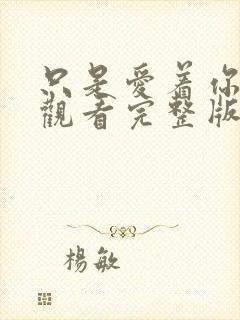 只是愛着你
觀看完整版
楊敏